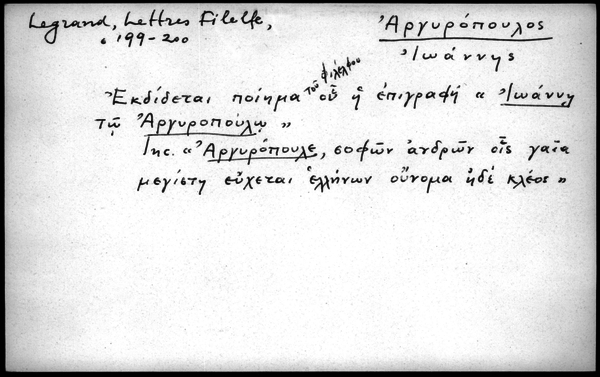 Legrand, Lettres Filelfe,
σ. 199-200
Ἀργυρόπουλος
Ἰωάννης
Ἐκδίδεται ποίημα τοῦ Φιλέλφου οὗ ἡ ἐπιγραφή « Ἰωάννῃ
τῷ Ἀργυροπούλῳ »
Ἱης. « Ἀργυρόπουλε, σοφῶν ἀνδρῶν οἷς γαῖα
μεγίστη εὔχεται ἑλλήνων οὔνομα ἠδέ κλέος »